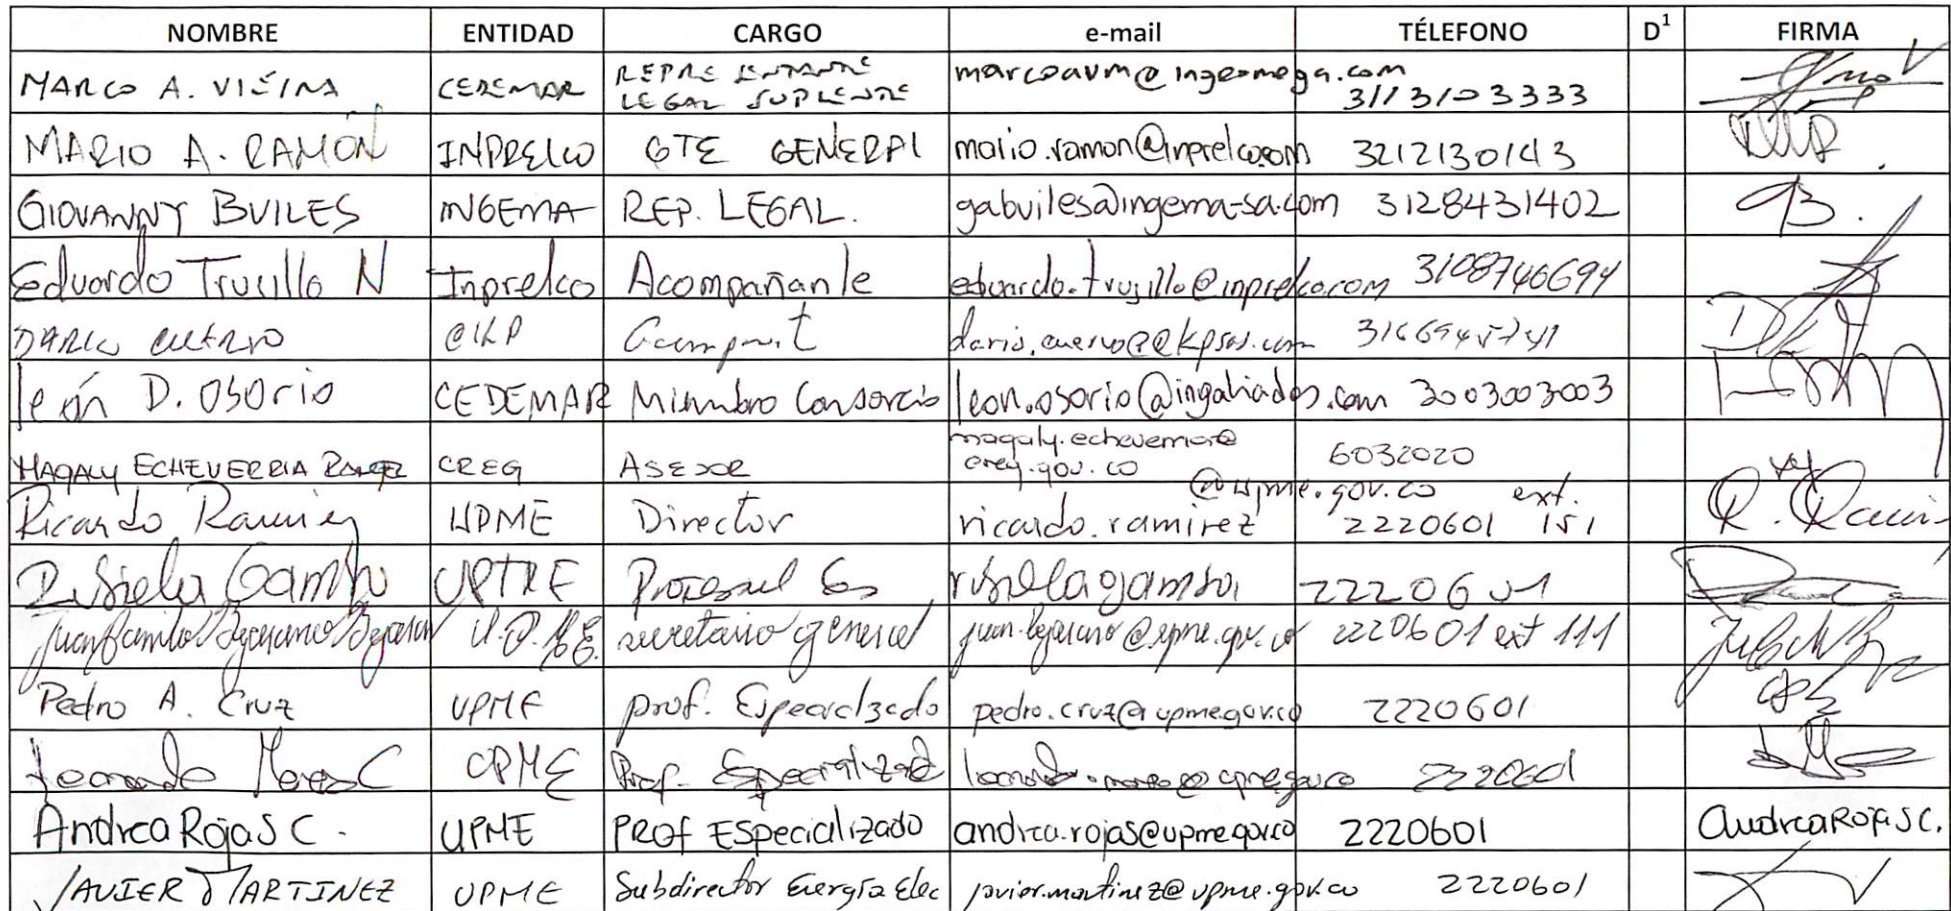 NOMBRE ENTIDAD CARGO e-mail TÉLEFONO D¹ FIRMA
MARCO A. VIEIRA CEDEMAR REPRESENTANTE LEGAL SUPLENTE marcoavm@ingeomega.com 3113103333
MARIO A. RAMÓN INPRELCO GTE GENERAL mario.ramon@inprelco.com 3212130143
GIOVANNY BUILES INGEMA REP. LEGAL. gabuiles@ingema-sa.com 3128431402 GB.
Eduardo Trujillo N Inprelco Acompañante eduardo.trujillo@inprelco.com 3108746694
DARIO CUERVO
León D. OSORIO CEDEMAR Miembro Consorcio leon.osorio@ingaliados.com 3003003003
MAGALY ECHEVERRIA RANGEL CREG ASESOR magaly.echeverria@creg.gov.co 6032020
Ricardo Ramirez UPME Director ricardo.ramirez @upme.gov.co 2220601 ext. 151 R. Ramir
Gamba 2220601
Juan Camilo Bejarano Bejarano U.P.M.E. secretario general juan.bejarano@upme.gov.co 2220601 ext 111
Pedro A. Cruz UPME prof. Especializado pedro.cruz@upme.gov.co 2220601
UPME Prof. Especializado 2220601
Andrea Rojas C. UPME PROF Especializado andrea.rojas@upme.gov.co 2220601 Andrea Rojas C.
JAVIER MARTINEZ UPME Subdirector Energía Elec javier.martinez@upme.gov.co 2220601